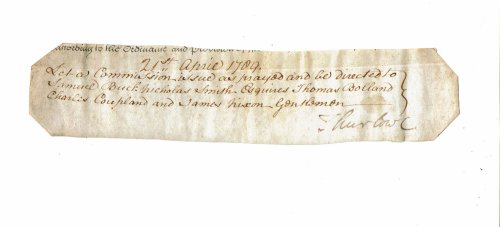 according to the Ordinance and provision of
21st April 1784.
Let a Commission issue as prayed and be directed to
Samuel Buck Nicholas Smith Esquires Thomas Bolland
Charles Coupland and James Nixon Gentlemen
Thurlow C.